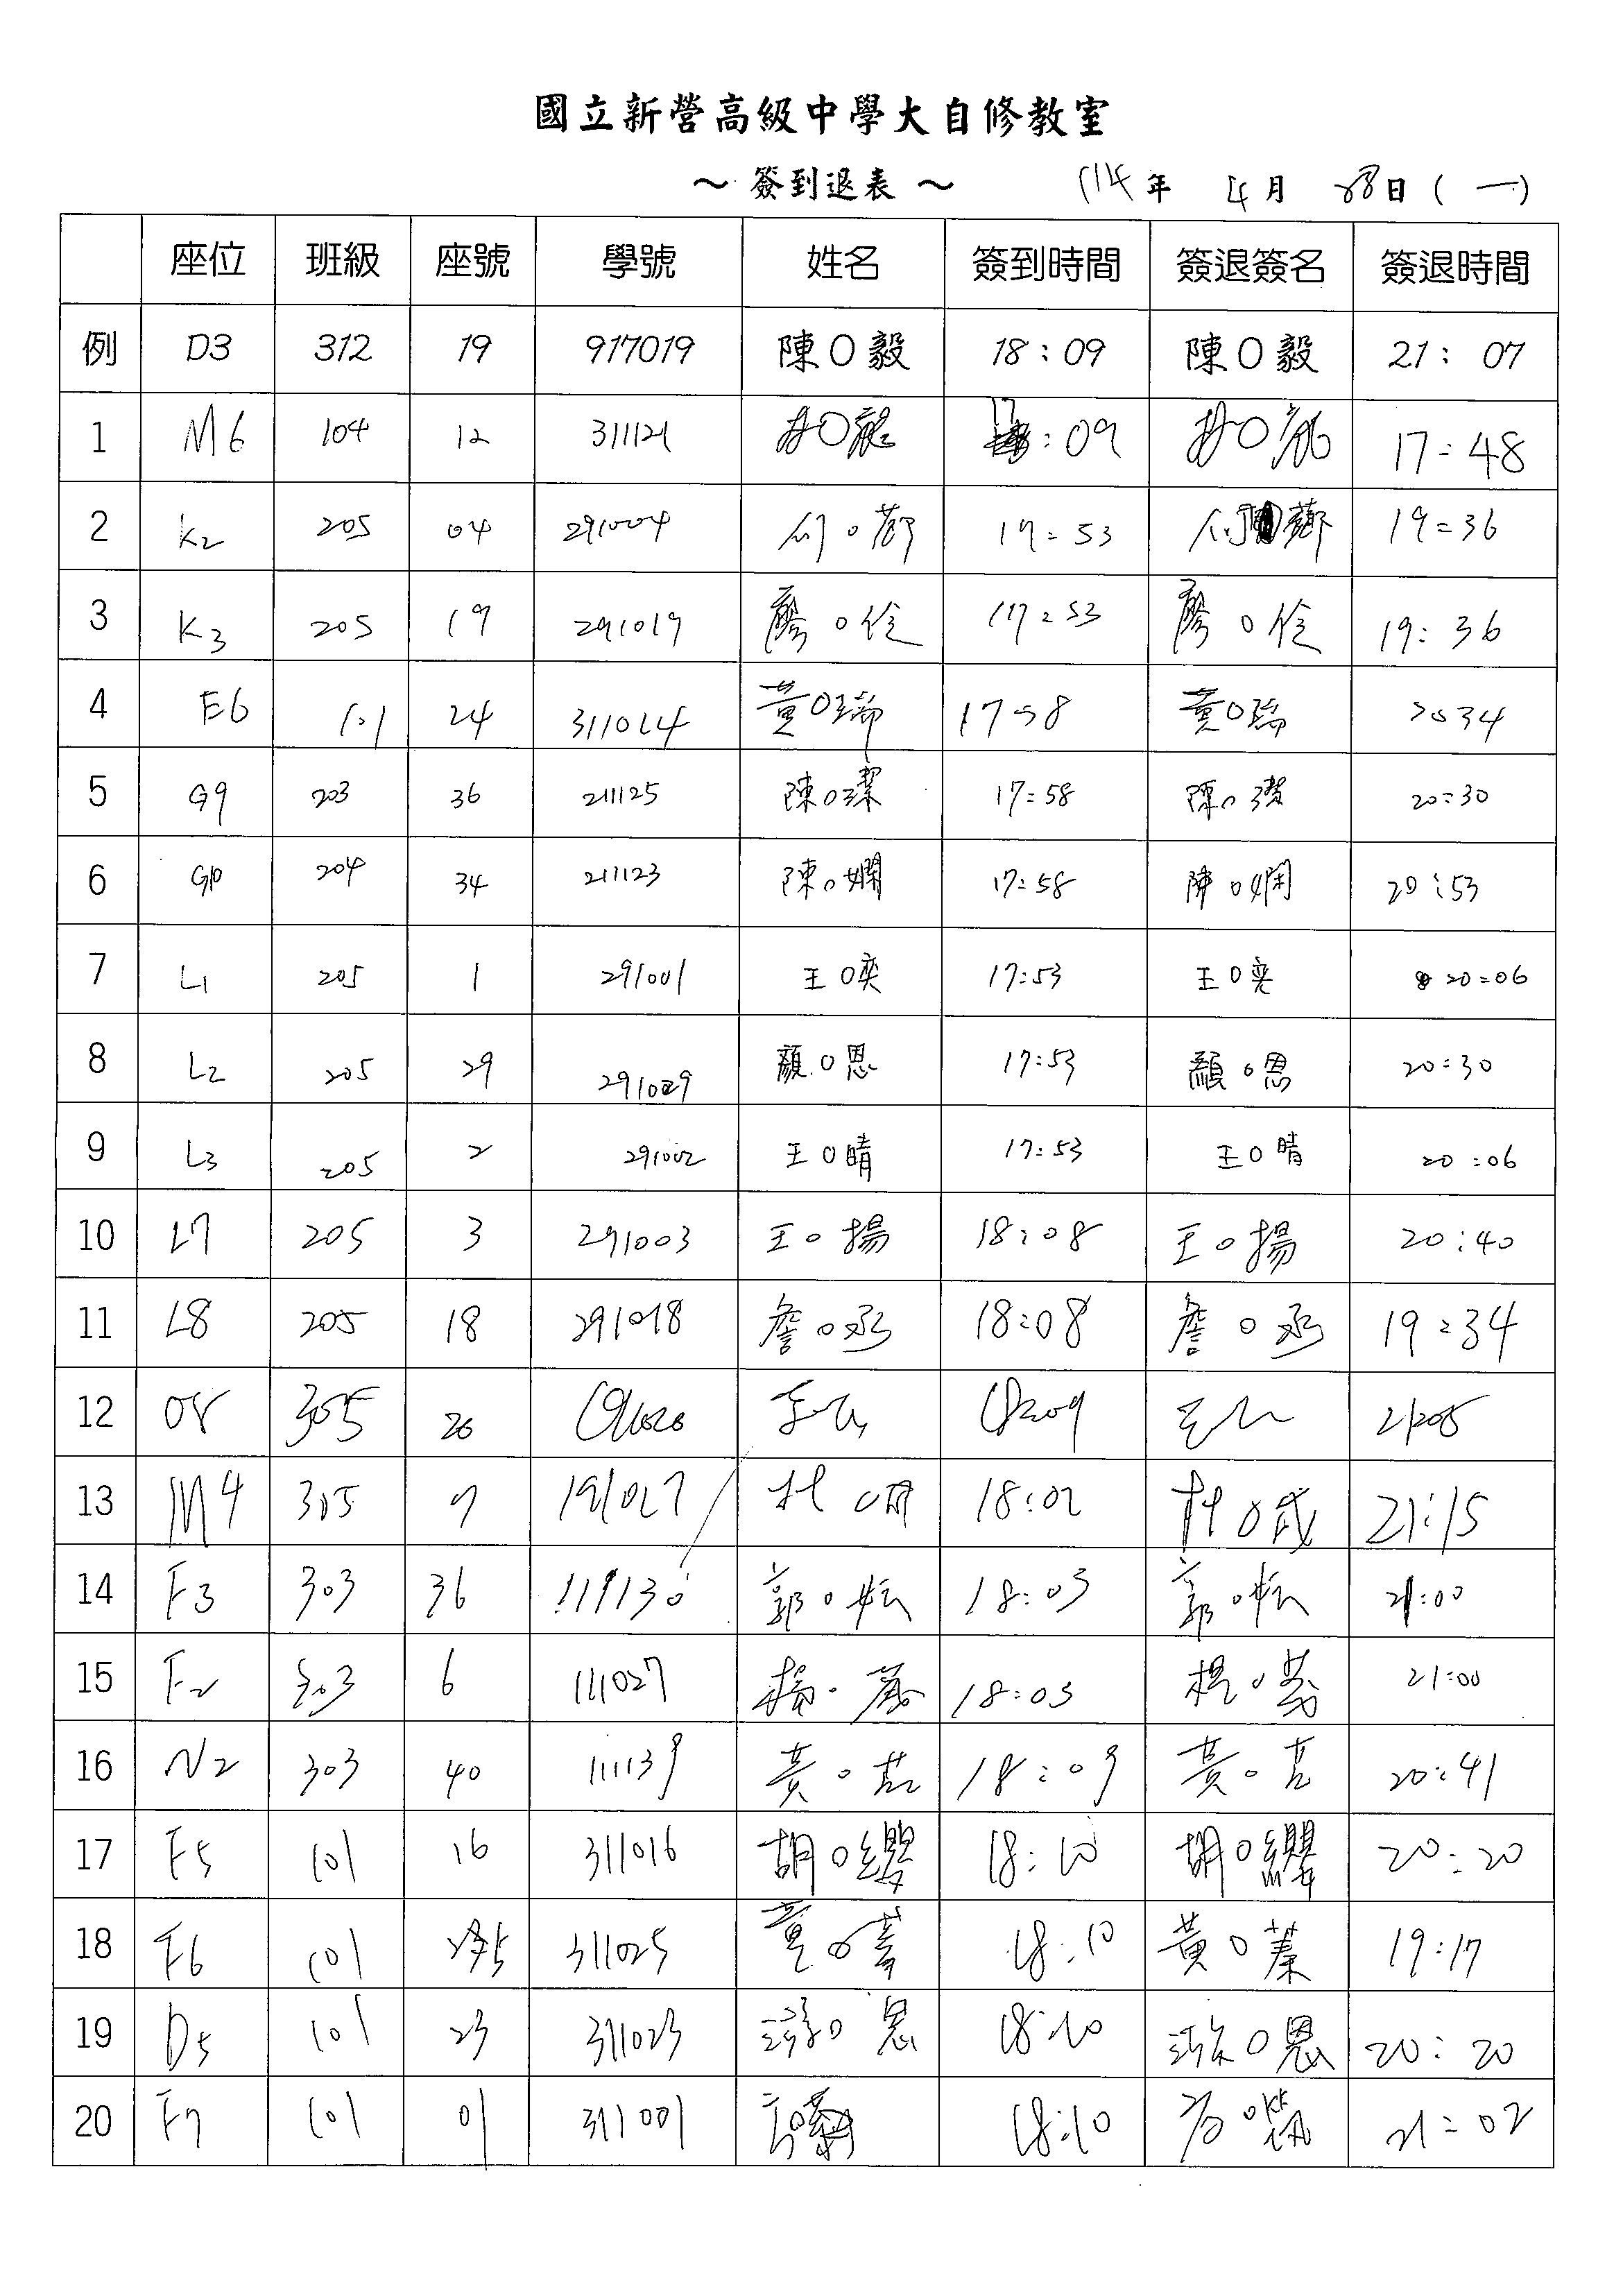 國立新營高級中學大自修教室
～簽到退表～ 114年 4月 28日(一)
座位 班級 座號 學號 姓名 簽到時間 簽退簽名 簽退時間
例 D3 312 19 917019 陳O毅 18:09 陳O毅 21:07
1 M6 104 12 311121 17:09 17:48
2 K2 205 04 291004 17:53 19:36
3 K3 205 19 291019 廖O佺 17:53 廖O佺 19:36
4 E6 101 24 311024 黃O瑞 1758 黃O瑞 2034
5 G9 203 36 211125 陳O潔 17:58 陳O 20:30
6 G10 204 34 211123 陳O嫻 17:58 陳O嫻 20:53
7 L1 205 1 291001 王O奕 17:53 王O奕 20:06
8 L2 205 29 291029 顏O恩 17:53 顏O恩 20:30
9 L3 205 2 291002 王O晴 17:53 王O晴 20:06
10 L7 205 3 291003 王O揚 18:08 王O揚 20:40
11 L8 205 18 291018 詹O丞 18:08 詹O丞 19:34
12 O8 305 20 191020 18:09 21:05
13 M4 305 7 191027 杜 18:02 杜O成 21:15
14 F3 303 36 111130 郭O妘 18:03 郭O妘 21:00
15 F2 303 6 111027 楊O 18:03 楊O 21:00
16 N2 303 40 111139 黃O 18:09 黃O 20:41
17 F5 101 16 311016 胡O纓 18:10 胡O纓 20:20
18 F6 101 25 311025 黃O蓁 18:10 黃O蓁 19:17
19 D5 101 23 311023 游O恩 18:10 游O恩 20:20
20 F7 101 01 311001 18:10 21:02